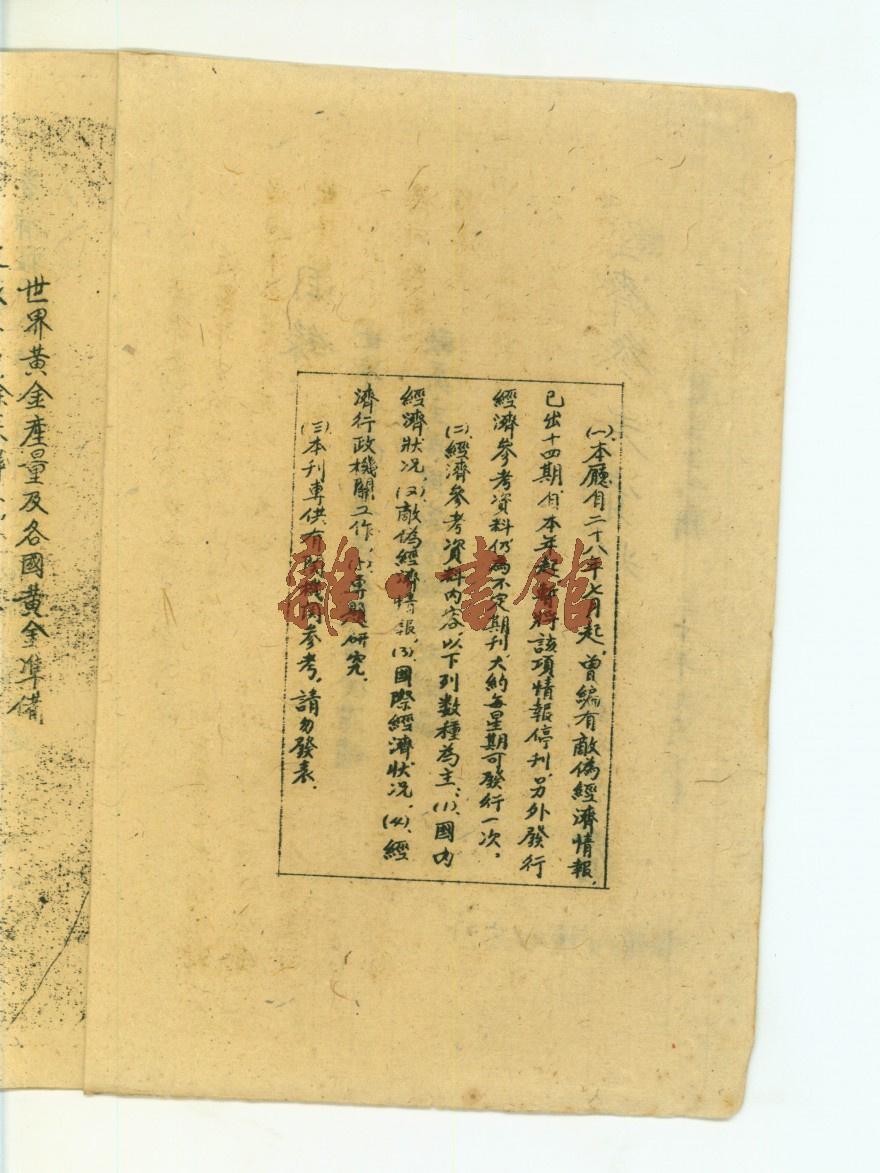 (一)、本廳自二十八年七月起，曾編有敵偽經濟情報，
已出十四期，自本年起暫將該項情報停刊，另外發行
經濟參考資料仍為不定期刊，大約每星期可發行一次，
(二)、經濟參考資料內容，以下列數種為主：(1)、國內
經濟狀况，(2)、敵偽經濟情報，(3)、國際經濟狀况，(4)、經
濟行政機關工作，(5)、專題研究，
(三)、本刊專供有関機関參考，請勿發表，
世界黃金產量及各國黃金準備
雜·書館